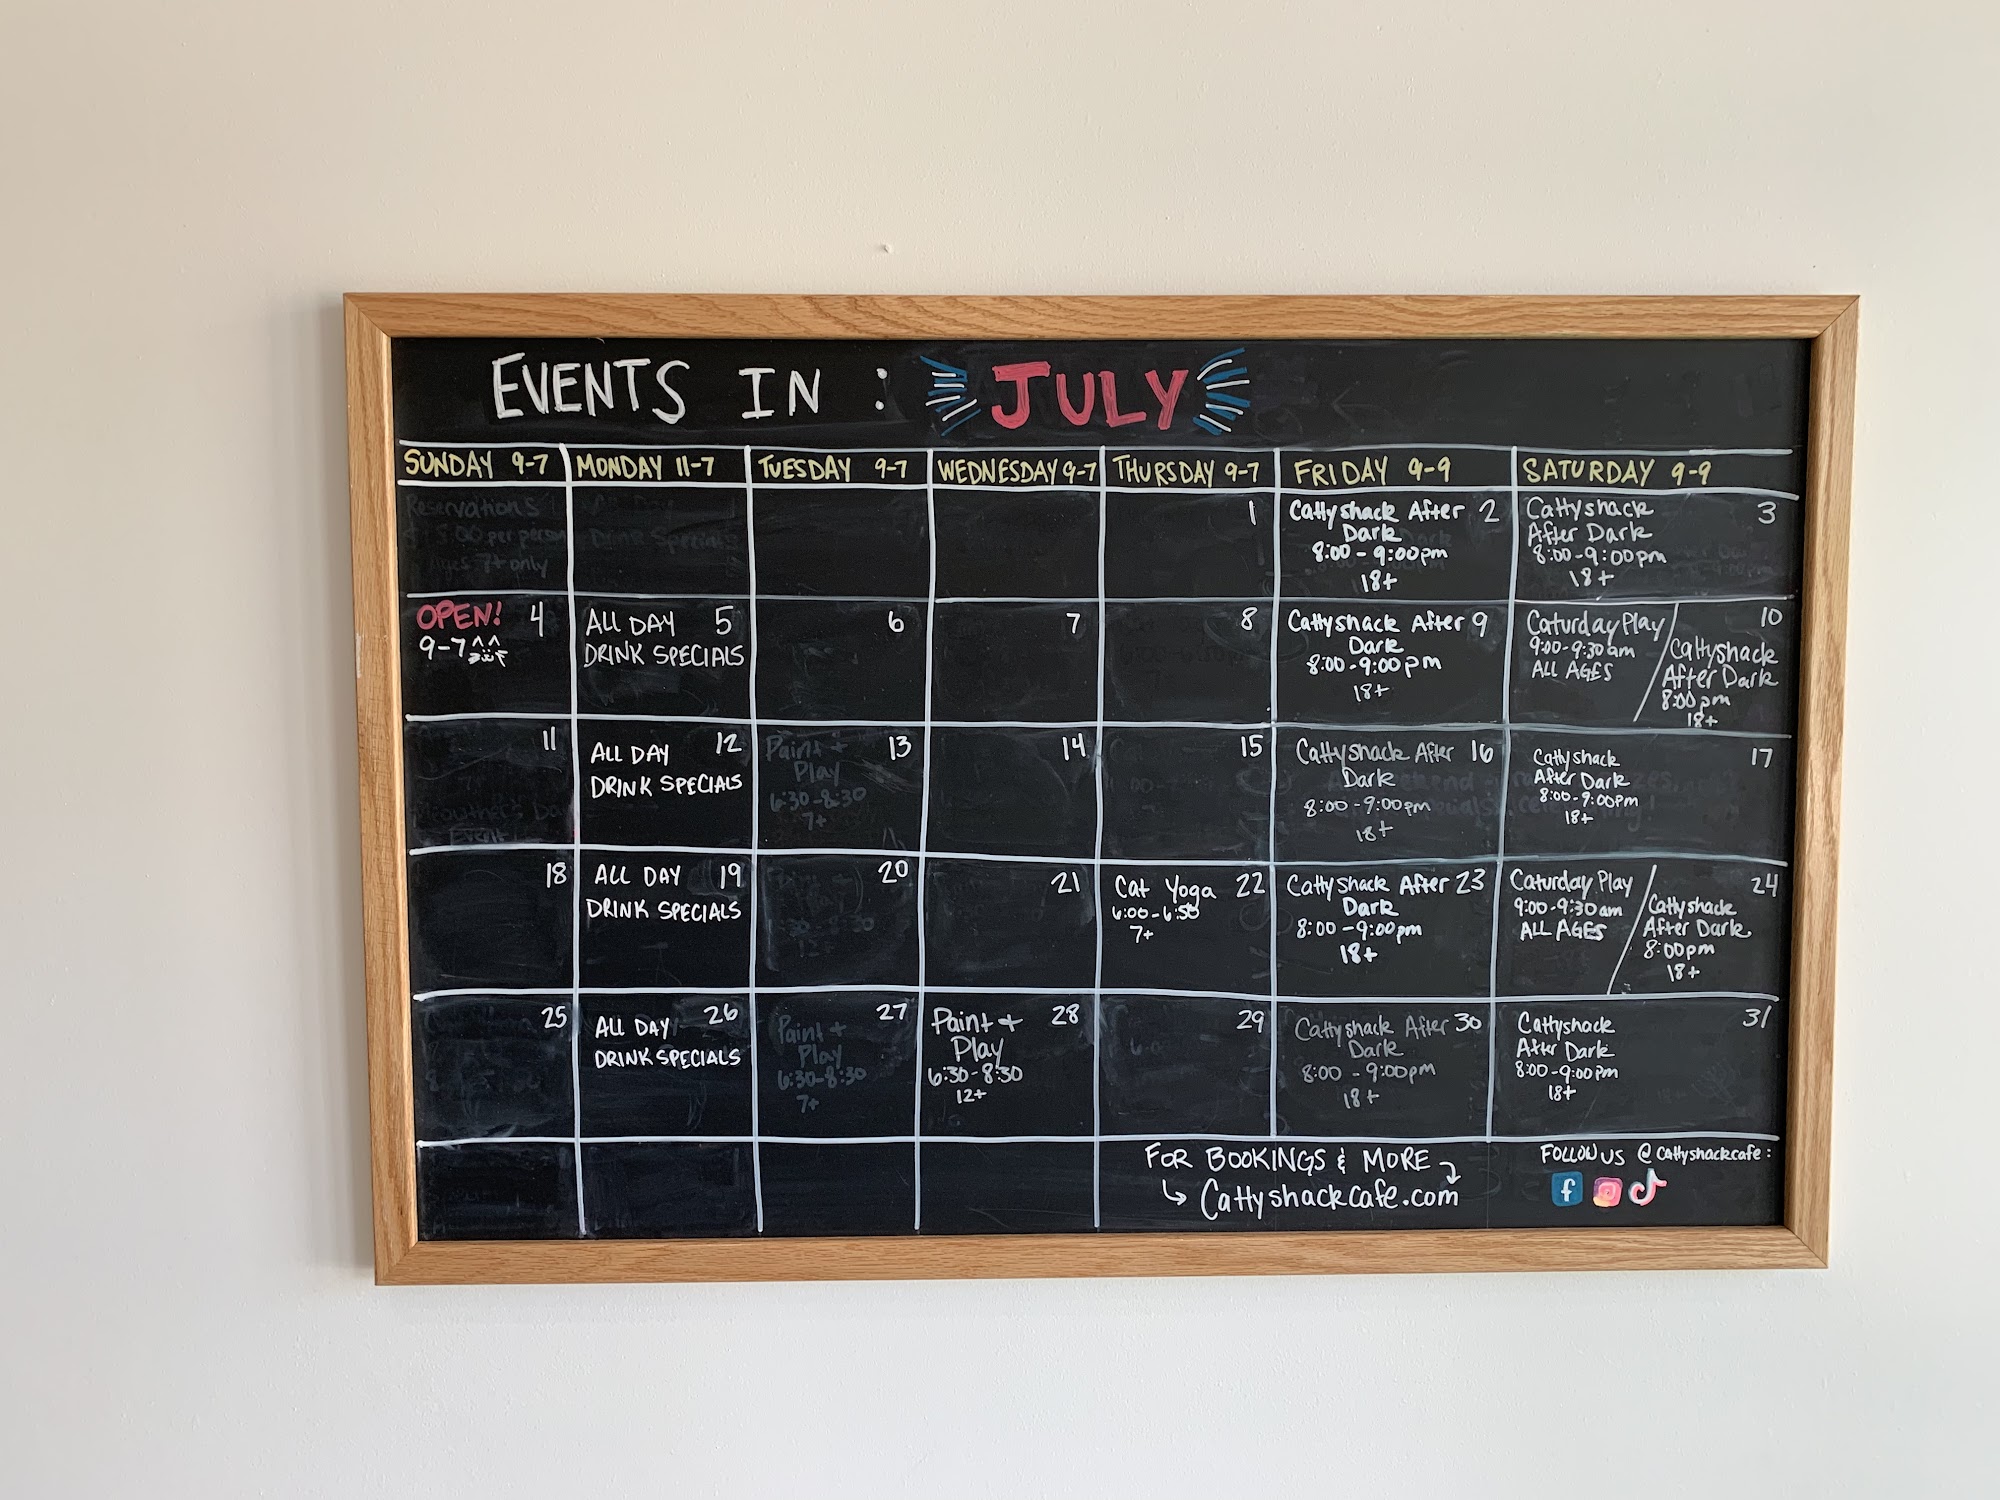 EVENTS IN : JULY
SUNDAY 9-7
MONDAY 11-7
TUESDAY 9-7
WEDNESDAY 9-7
THURSDAY 9-7
FRIDAY 9-9
SATURDAY 9-9
Reservations
per person
Ages 7+ only
All Day
Drink Specials
1
Cattyshack After 2
Dark
8:00-9:00pm
18+
Cattyshack 3
After Dark
8:00-9:00pm
18+
OPEN! 4
9-7
ALL DAY 5
DRINK SPECIALS
6
7
8
Cattyshack After 9
Dark
8:00-9:00pm
18+
10
Caturday Play
9:00-9:30am
ALL AGES
Cattyshack
After Dark
8:00pm
18+
11
Event
ALL DAY 12
DRINK SPECIALS
Paint + 13
Play
6:30-8:30
7+
14
15
Cattyshack After 16
Dark
8:00-9:00pm
18+
Cattyshack 17
After Dark
8:00-9:00pm
18+
18
ALL DAY 19
DRINK SPECIALS
20
21
Cat Yoga 22
7+
Cattyshack After 23
Dark
8:00-9:00pm
18+
24
Caturday Play
9:00-9:30am
ALL AGES
Cattyshack
After Dark
8:00pm
18+
25
ALL DAY 26
DRINK SPECIALS
Paint + 27
Play
6:30-8:30
7+
Paint + 28
Play
6:30-8:30
12+
29
Cattyshack After 30
Dark
8:00-9:00pm
18+
Cattyshack 31
After Dark
8:00-9:00pm
18+
FOR BOOKINGS & MORE
Cattyshackcafe.com
FOLLOW US @cattyshackcafe: